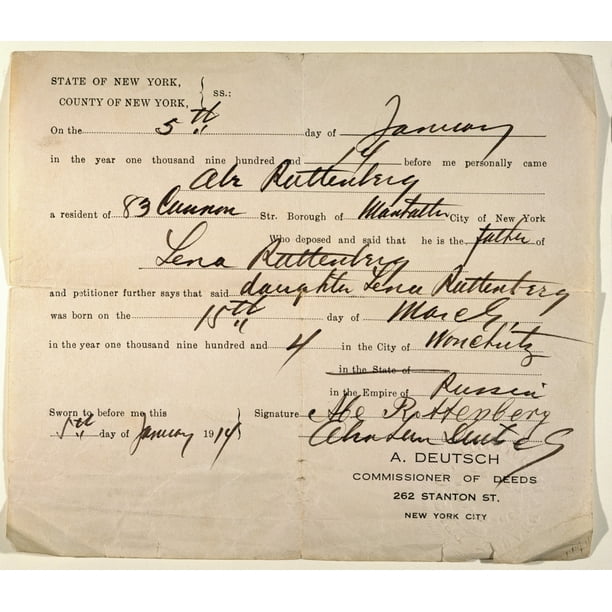 STATE OF NEW YORK,
COUNTY OF NEW YORK, } ss.:
On the 5th day of January
in the year one thousand nine hundred and 14 before me personally came
Abe Ruttenberg
a resident of 83 Cannon Str. Borough of Manhattan City of New York
Who deposed and said that he is the father of
Lena Ruttenberg
and petitioner further says that said daughter Lena Ruttenberg
was born on the 15th day of March
in the year one thousand nine hundred and 4 in the City of
in the State of
in the Empire of Russia
Sworn to before me this Signature Abe Rottenberg
5th day of January 1914 Deutsch
A. DEUTSCH
COMMISSIONER OF DEEDS
262 STANTON ST.
NEW YORK CITY